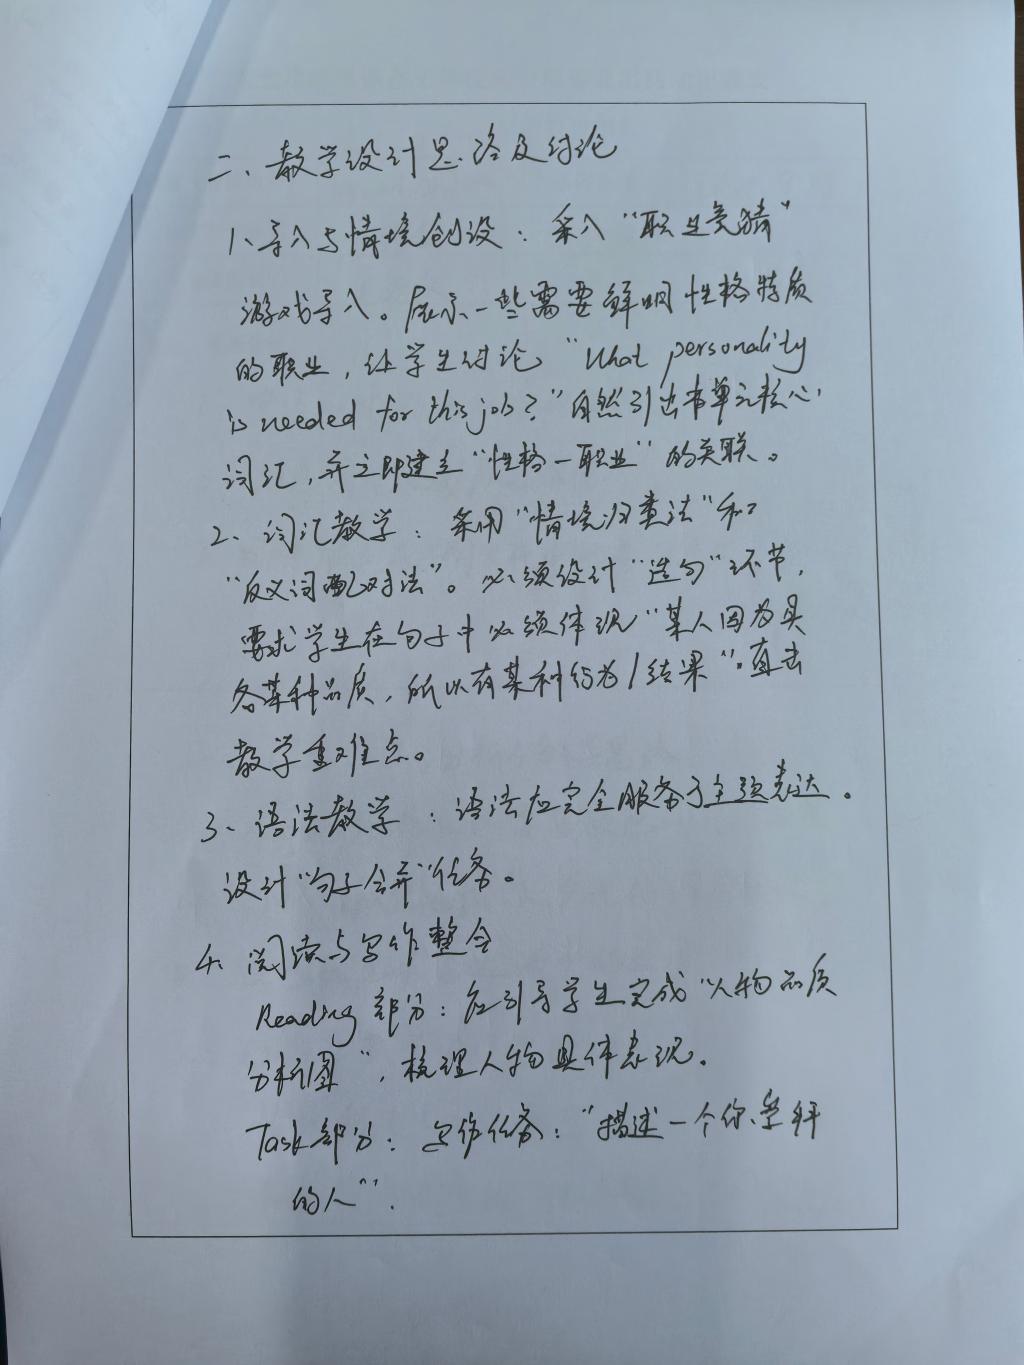 二、教学设计思路及讨论
1、导入与情境创设：采入“职业竞猜”
游戏导入。展示一些需要鲜明性格特质
的职业，让学生讨论“What personality
is needed for this job?”自然引出本单元核心
词汇，并立即建立“性格—职业”的关联。
2、词汇教学：采用“情境归类法”和
“反义词配对法”。必须设计“造句”环节，
要求学生在句子中必须体现“某人因为具
备某种品质，所以有某种行为/结果”。直击
教学重难点。
3、语法教学：语法应完全服务于主题表达。
设计“句子合并”任务。
4、阅读与写作整合
Reading部分：应引导学生完成“人物品质
分析图”，梳理人物具体表现。
Task部分：写作任务：“描述一个你崇拜
的人”.